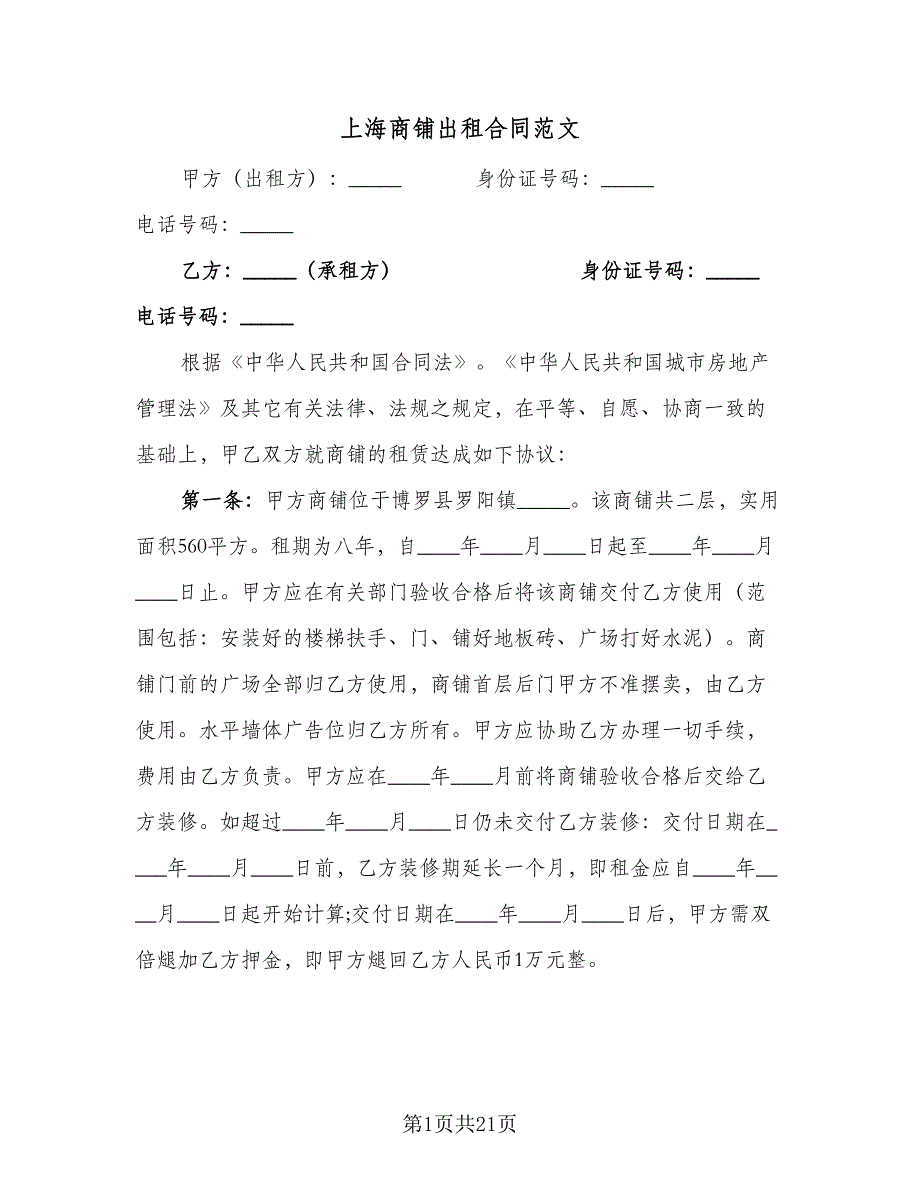 上海商铺出租合同范文
甲方（出租方）：_____ 身份证号码：_____
电话号码：_____
乙方：_____（承租方） 身份证号码：_____
电话号码：_____
根据《中华人民共和国合同法》。《中华人民共和国城市房地产
管理法》及其它有关法律、法规之规定，在平等、自愿、协商一致的
基础上，甲乙双方就商铺的租赁达成如下协议：
第一条：甲方商铺位于博罗县罗阳镇_____。该商铺共二层，实用
面积560平方。租期为八年，自____年____月____日起至____年____月
____日止。甲方应在有关部门验收合格后将该商铺交付乙方使用（范
围包括：安装好的楼梯扶手、门、铺好地板砖、广场打好水泥）。商
铺门前的广场全部归乙方使用，商铺首层后门甲方不准摆卖，由乙方
使用。水平墙体广告位归乙方所有。甲方应协助乙方办理一切手续，
费用由乙方负责。甲方应在____年____月前将商铺验收合格后交给乙
方装修。如超过____年____月____日仍未交付乙方装修：交付日期在_
___年____月____日前，乙方装修期延长一个月，即租金应自____年__
__月____日起开始计算;交付日期在____年____月____日后，甲方需双
倍煺加乙方押金，即甲方煺回乙方人民币1万元整。
第1页共21页